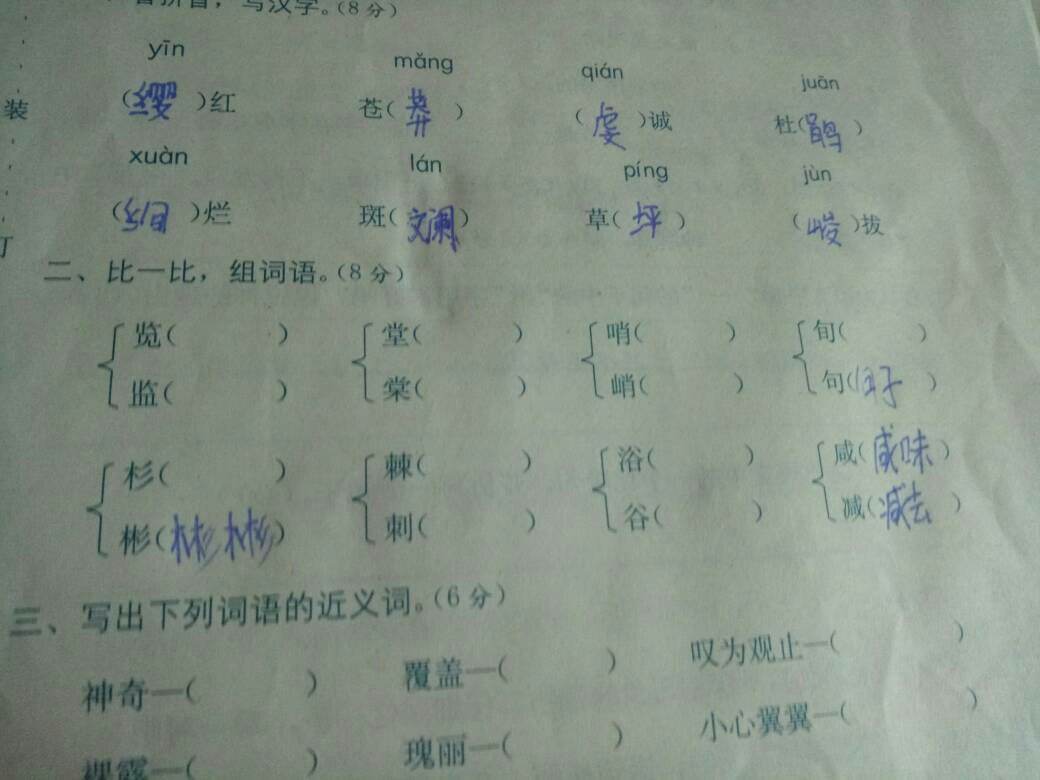 看拼音，写汉字。(8分)
yīn mǎng qián juān
(缨)红 苍(莽) (虔)诚 杜(鹃)
xuàn lán píng jùn
(绚)烂 斑(斓) 草(坪) (峻)拔
装
订
二、比一比，组词语。(8分)
览( ) 堂( ) 哨( ) 旬( )
监( ) 棠( ) 峭( ) 句(句子)
杉( ) 棘( ) 浴( ) 咸(咸味)
彬(彬彬) 刺( ) 谷( ) 减(减去)
三、写出下列词语的近义词。(6分)
神奇—( ) 覆盖—( ) 叹为观止—( )
裸露—( ) 瑰丽—( ) 小心翼翼—( )